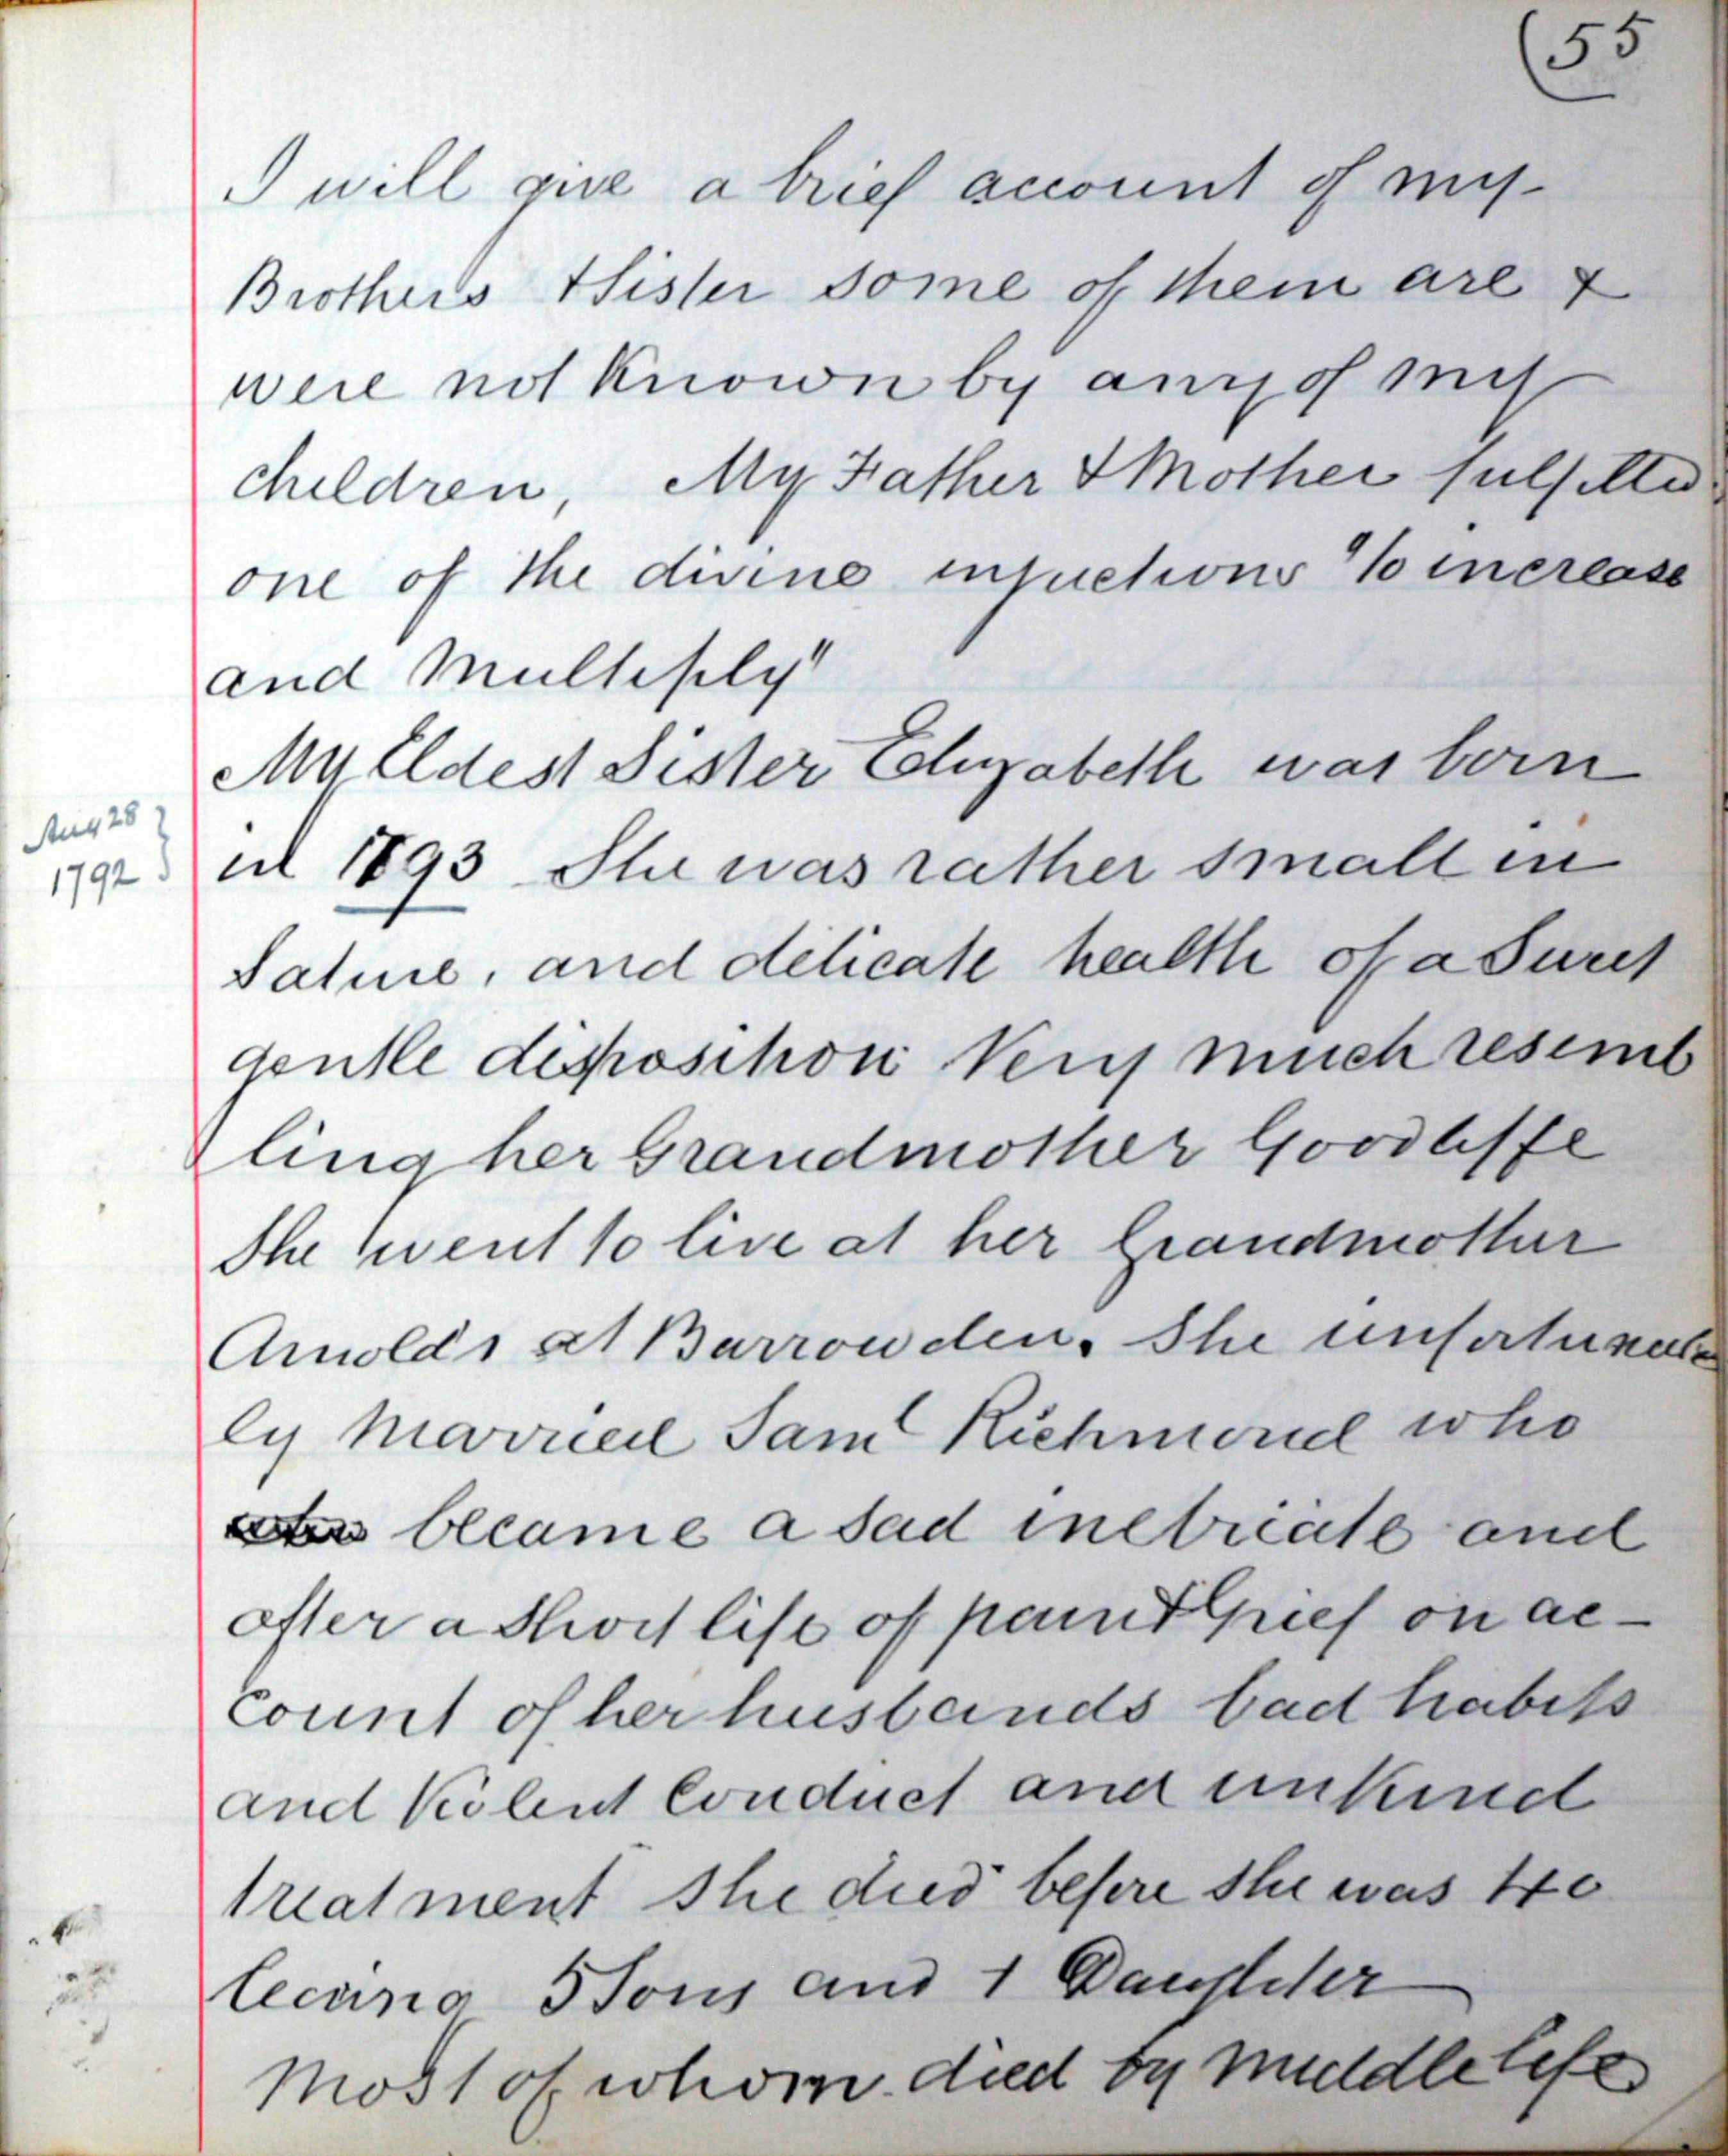 (55
I will give a brief account of my-
Brothers & Sister some of them are &
were not known by any of my
children, My Father & Mother fulfilled
one of the divine injuctions "to increase
and Multiply"
My Eldest Sister Elizabeth was born
Aug 28
1792
in 1793 She was rather small in
Sature, and delicate health of a Sweet
gentle disposition Very much resemb
ling her Grandmother Goodliffe
She went to live at her Grandmother
Arnold's at Barrowden. She unfortunate
ly Married Saml Richmond who
became a sad inebriate and
after a short life of pain & Grief on ac-
count of her husbands bad habits
and Violent Conduct and unkind
treatment She died before she was 40
leaving 5 Sons and 1 Daughter
Most of whom died by middle life